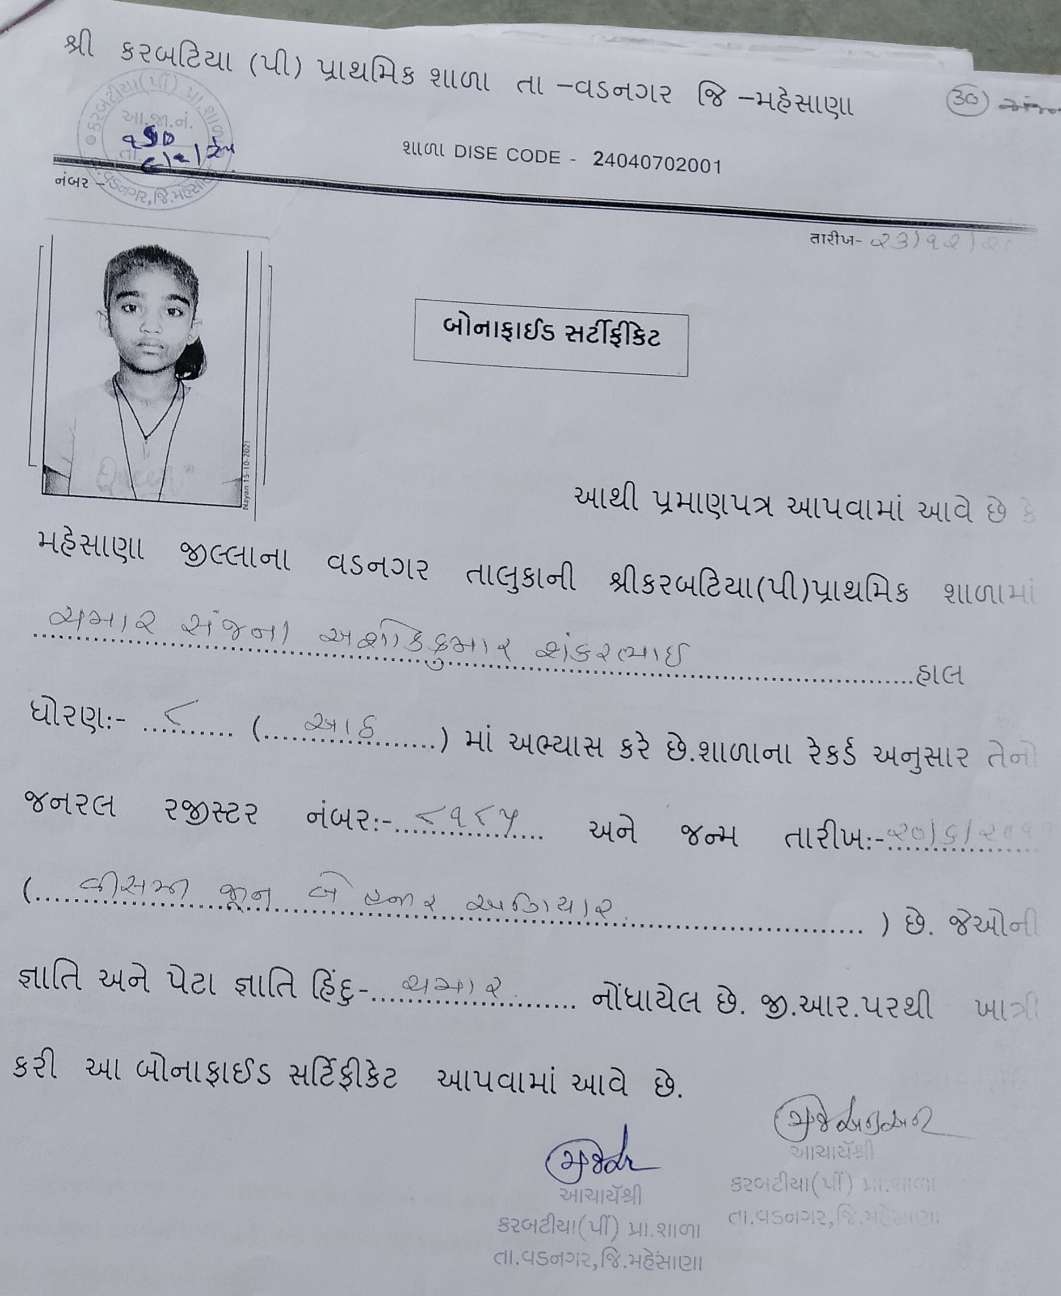 શ્રી કરબટિયા (પી) પ્રાથમિક શાળા તા -વડનગર જિ -મહેસાણા
30
કરબટીયા(પી) પ્રા.શાળા
આ.જા.નં.
તા.વડનગર,જિ.મહેસાણા
શાળા DISE CODE - 24040702001
નંબર -
તારીખ- ૨૩/૧૨/
બોનાફાઈડ સર્ટીફીકેટ
Nayan 15-10-2021
આથી પ્રમાણપત્ર આપવામાં આવે છે કે
મહેસાણા જીલ્લાના વડનગર તાલુકાની શ્રીકરબટિયા(પી)પ્રાથમિક શાળામાં
ચમાર સંજના અશોકકુમાર શંકરભાઈ હાલ
ધોરણ:- ૮ (આઠ) માં અભ્યાસ કરે છે.શાળાના રેકર્ડ અનુસાર તેનો
જનરલ રજીસ્ટર નંબર:- ૮૧૮૫ અને જન્મ તારીખ:- ૨૦/૬/૨૦૧૧
(વીસમી જૂન બે હજાર અગિયાર) છે. જેઓની
જ્ઞાતિ અને પેટા જ્ઞાતિ હિંદુ- ચમાર નોંધાયેલ છે. જી.આર.પરથી ખાત્રી
કરી આ બોનાફાઈડ સર્ટિફીકેટ આપવામાં આવે છે.
આચાર્યશ્રી
કરબટીયા(પી) પ્રા.શાળા
તા.વડનગર,જિ.મહેસાણા
આચાર્યશ્રી
કરબટીયા(પી) પ્રા.શાળા
તા.વડનગર,જિ.મહેસાણા